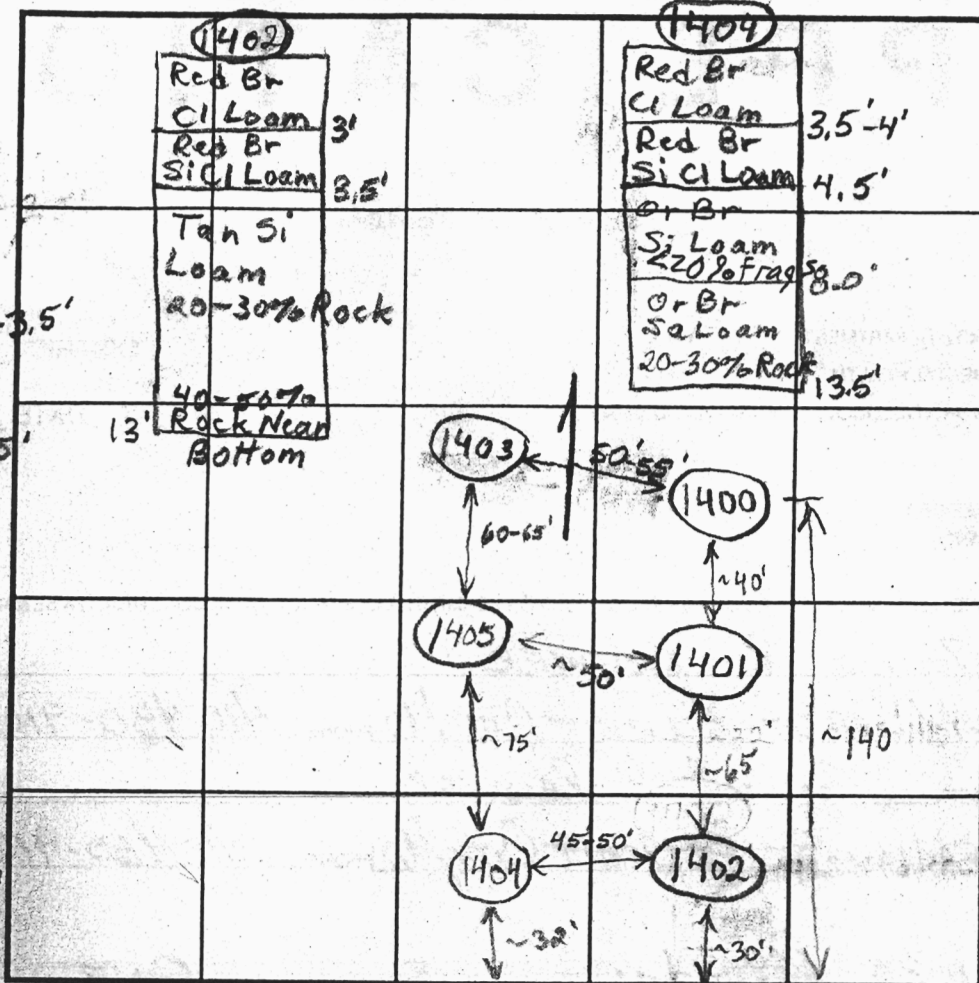 1402
Red Br
Cl Loam
3'
Red Br
Si Cl Loam
3.5'
Tan Si
Loam
20-30% Rock
Rock Near
13'
Bottom
1404
Red Br
Cl Loam
3.5'-4'
Red Br
Si Cl Loam
4.5'
Or Br
Si Loam
<20% Frags
8.0'
Or Br
Sa Loam
20-30% Rock
13.5'
3.5'
5'
1403
50'-55'
1400
60-65'
~40'
1405
~50'
1401
~75'
~65'
~140
1404
45-50'
1402
~32'
~30'